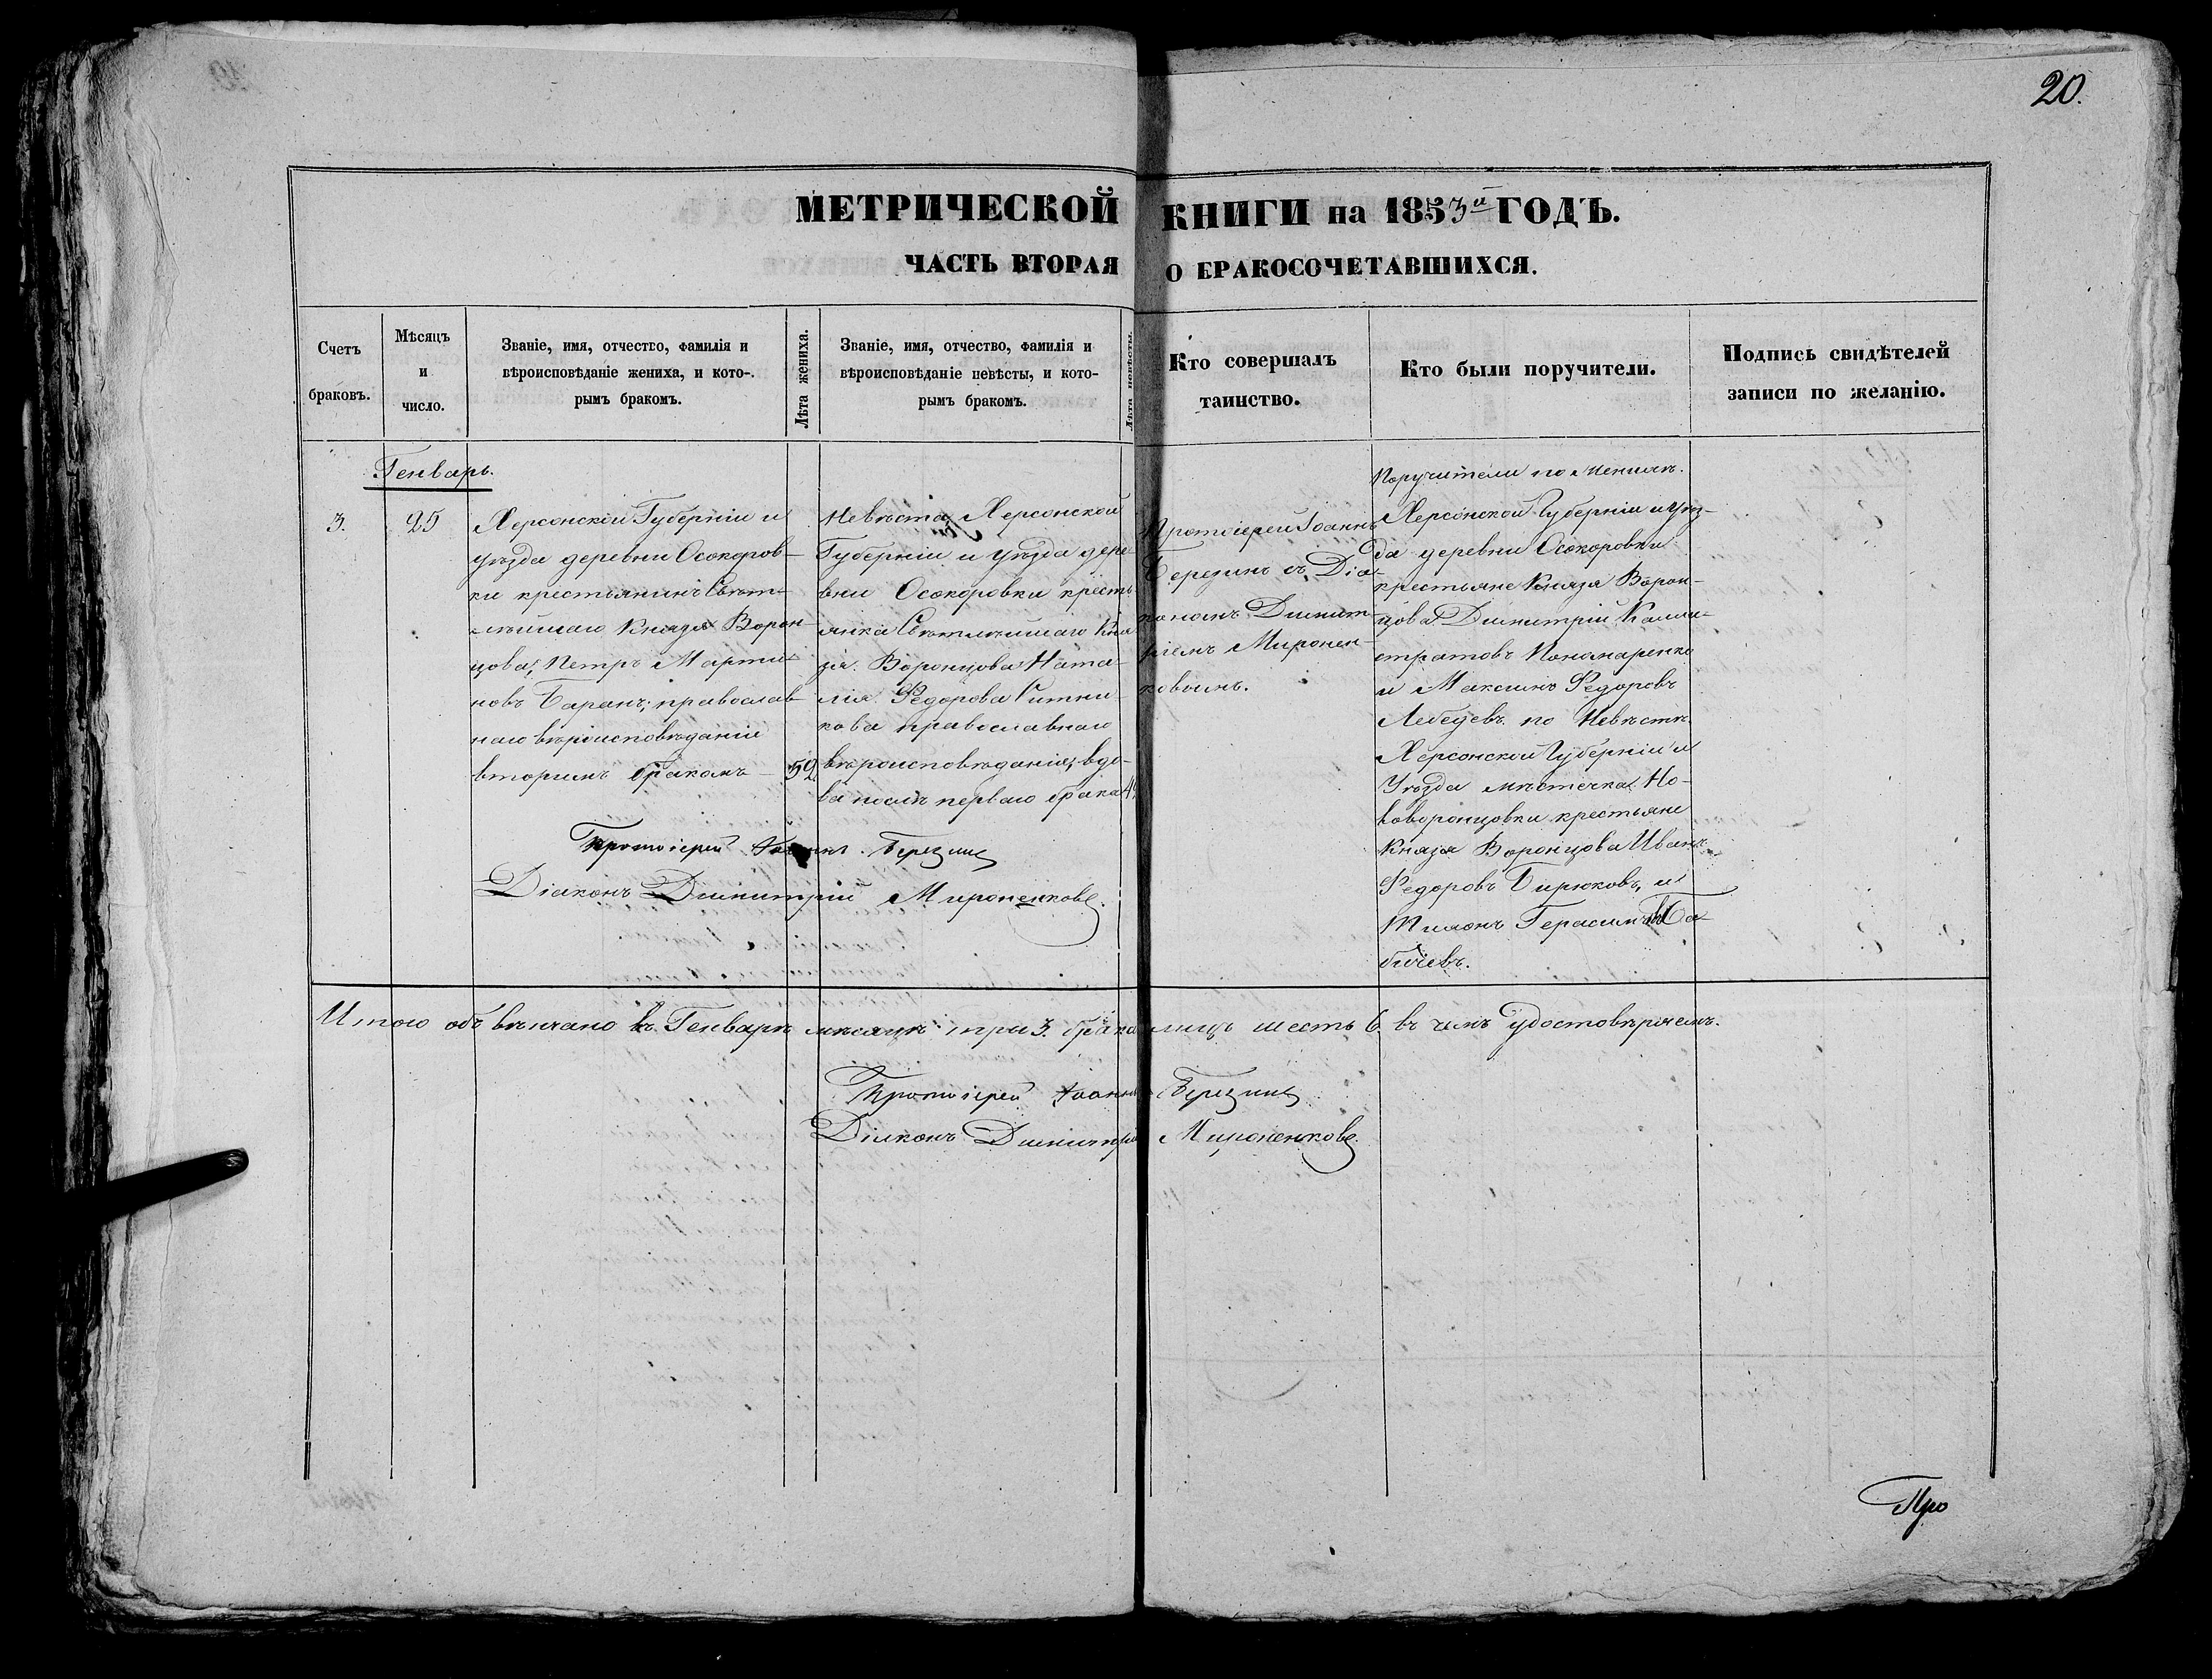 20.
МЕТРИЧЕСКОЙ КНИГИ на 1853й ГОДЪ.
ЧАСТЬ ВТОРАЯ О БРАКОСОЧЕТАВШИХСЯ.
Счетъ
браковъ.
Мѣсяцъ
и
число.
Званіе, имя, отчество, фамилія и
вѣроисповѣданіе жениха, и кото-
рымъ бракомъ.
Лѣта жениха.
Званіе, имя, отчество, фамилія и
вѣроисповѣданіе невѣсты, и кото-
рымъ бракомъ.
Лѣта невѣсты.
Кто совершалъ
таинство.
Кто были поручители.
Подпись свидѣтелей
записи по желанію.
Генварь.
3.
25
Херсонской Губерніи и
уѣзда деревни Осокоров-
ки крестьянинъ Свѣт-
лѣйшаго Князя Ворон-
цова, Петръ Марти-
новъ Баранъ, православ-
наго вѣроисповѣданія
вторымъ бракомъ
52
Невѣста, Херсонской
Губерніи и уѣзда дере-
вни Осокоровки кресть-
янка Свѣтлѣйшаго Кня-
зя Воронцова Ната-
лія Федорова Ситни-
кова православнаго
вѣроисповѣданія, вдо-
ва послѣ перваго брака
Протоіерей Іоаннъ
Березинъ съ Діа-
кономъ Димит-
ріемъ Миронен-
ковымъ.
Поручители по Женихѣ.
Херсонской Губерніи и уѣз-
да деревни Осокоровки
крестьяне Князя Ворон-
цова Димитрій Кали-
стратовъ Пономаренко
и Максимъ Федоровъ
Лебедевъ. по Невѣстѣ
Херсонской Губерніи и
Уѣзда мѣстечка Но-
воворонцовки крестьяне
Князя Воронцова Иванъ
Федоровъ Бирюковъ, и
Тихонъ Герасимовъ Ба-
бичевъ.
Протоіерей Іоаннъ Березинъ
Діаконъ Димитрій Мироненковъ.
Итого объ вѣнчано въ Генварѣ мѣсяцѣ три 3. брака лицъ шесть 6. въ чемъ удостовѣряемъ.
Протоіерей Іоаннъ Березинъ
Діаконъ Димитрій Мироненковъ.
Про